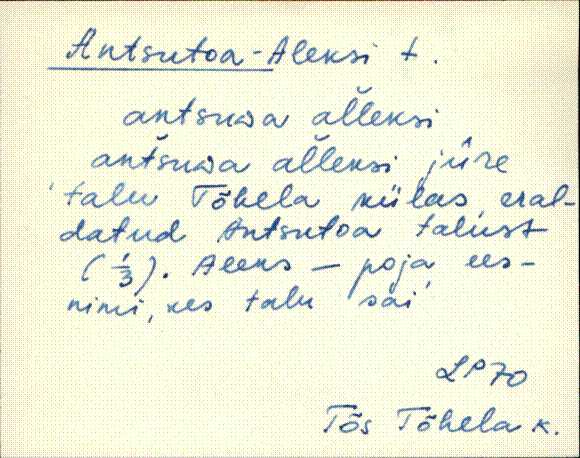 Antsutoa-Aleksi t.
antsuωa alleksi
antsuωa alleksi jüre
talu Tõhela külas eral-
datud Antsutoa talust
(1/3). Aleks – poja ees-
nimi, kes talu sai
LP70
Tõs Tõhela k.